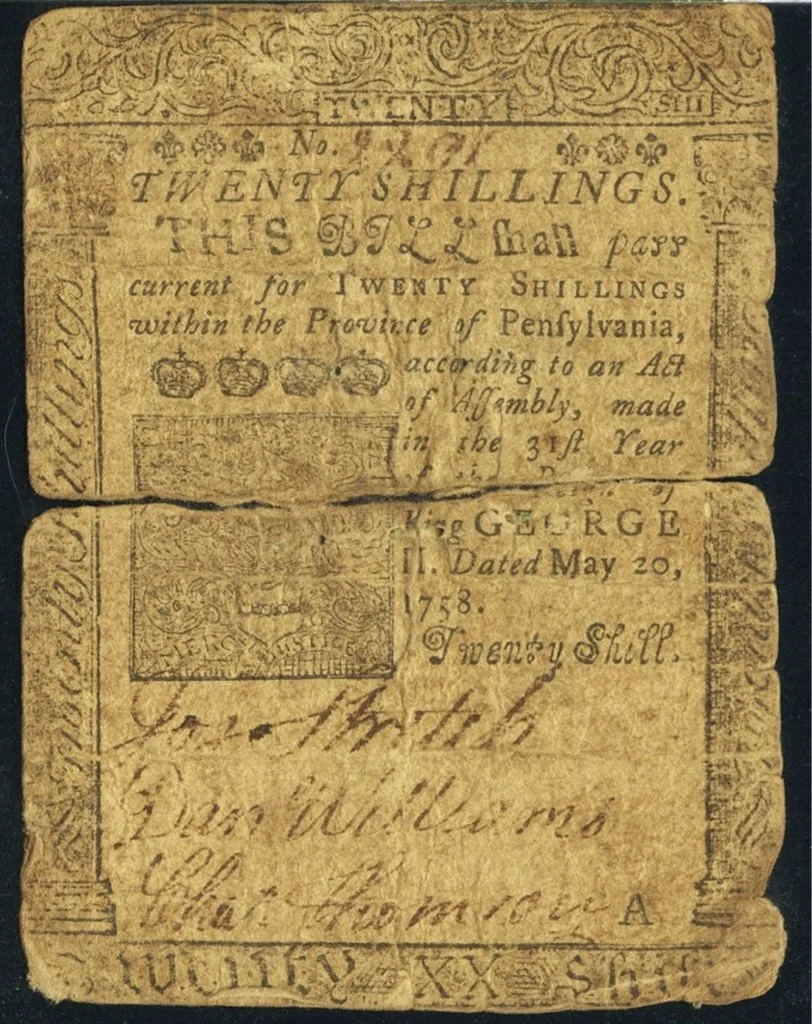 TWENTY SHII
No.
TWENTY SHILLINGS.
THIS BILL ſhall paſs
current for TWENTY SHILLINGS
within the Province of Penſylvania,
according to an Act
of Aſſembly, made
in the 31ſt Year
of
King GEORGE
II. Dated May 20,
1758.
Twenty Shill.
MERCY JUSTICE
Dan Williams
Cha Thomson
A
Twenty Shillings
Twenty XX Shill